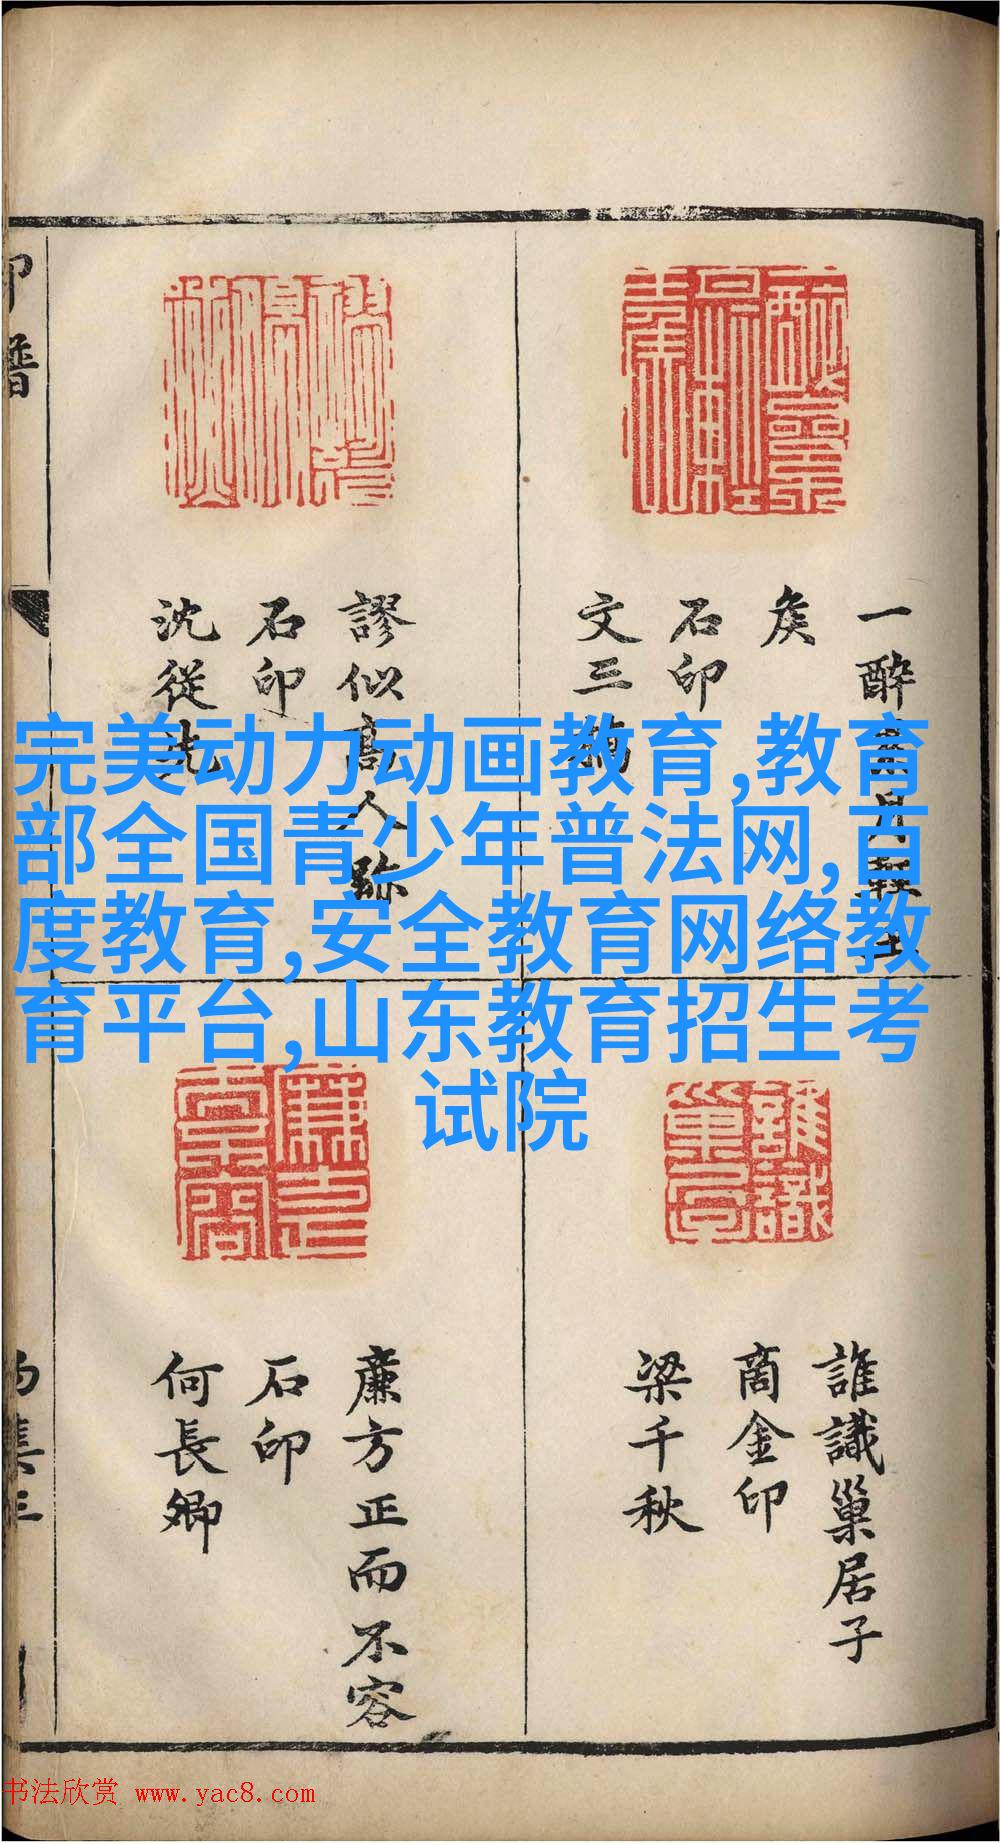 完美动力动画教育,教育
部全国青少年普法网,百
度教育,安全教育网络教
育平台,山东教育招生考
试院
矦
石印
文三橋
謬似高人跡
石印
沈從先
誰識巢居子
商金印
梁千秋
廉方正而不容
石印
何長卿
印譜
书法欣赏 www.yac8.com